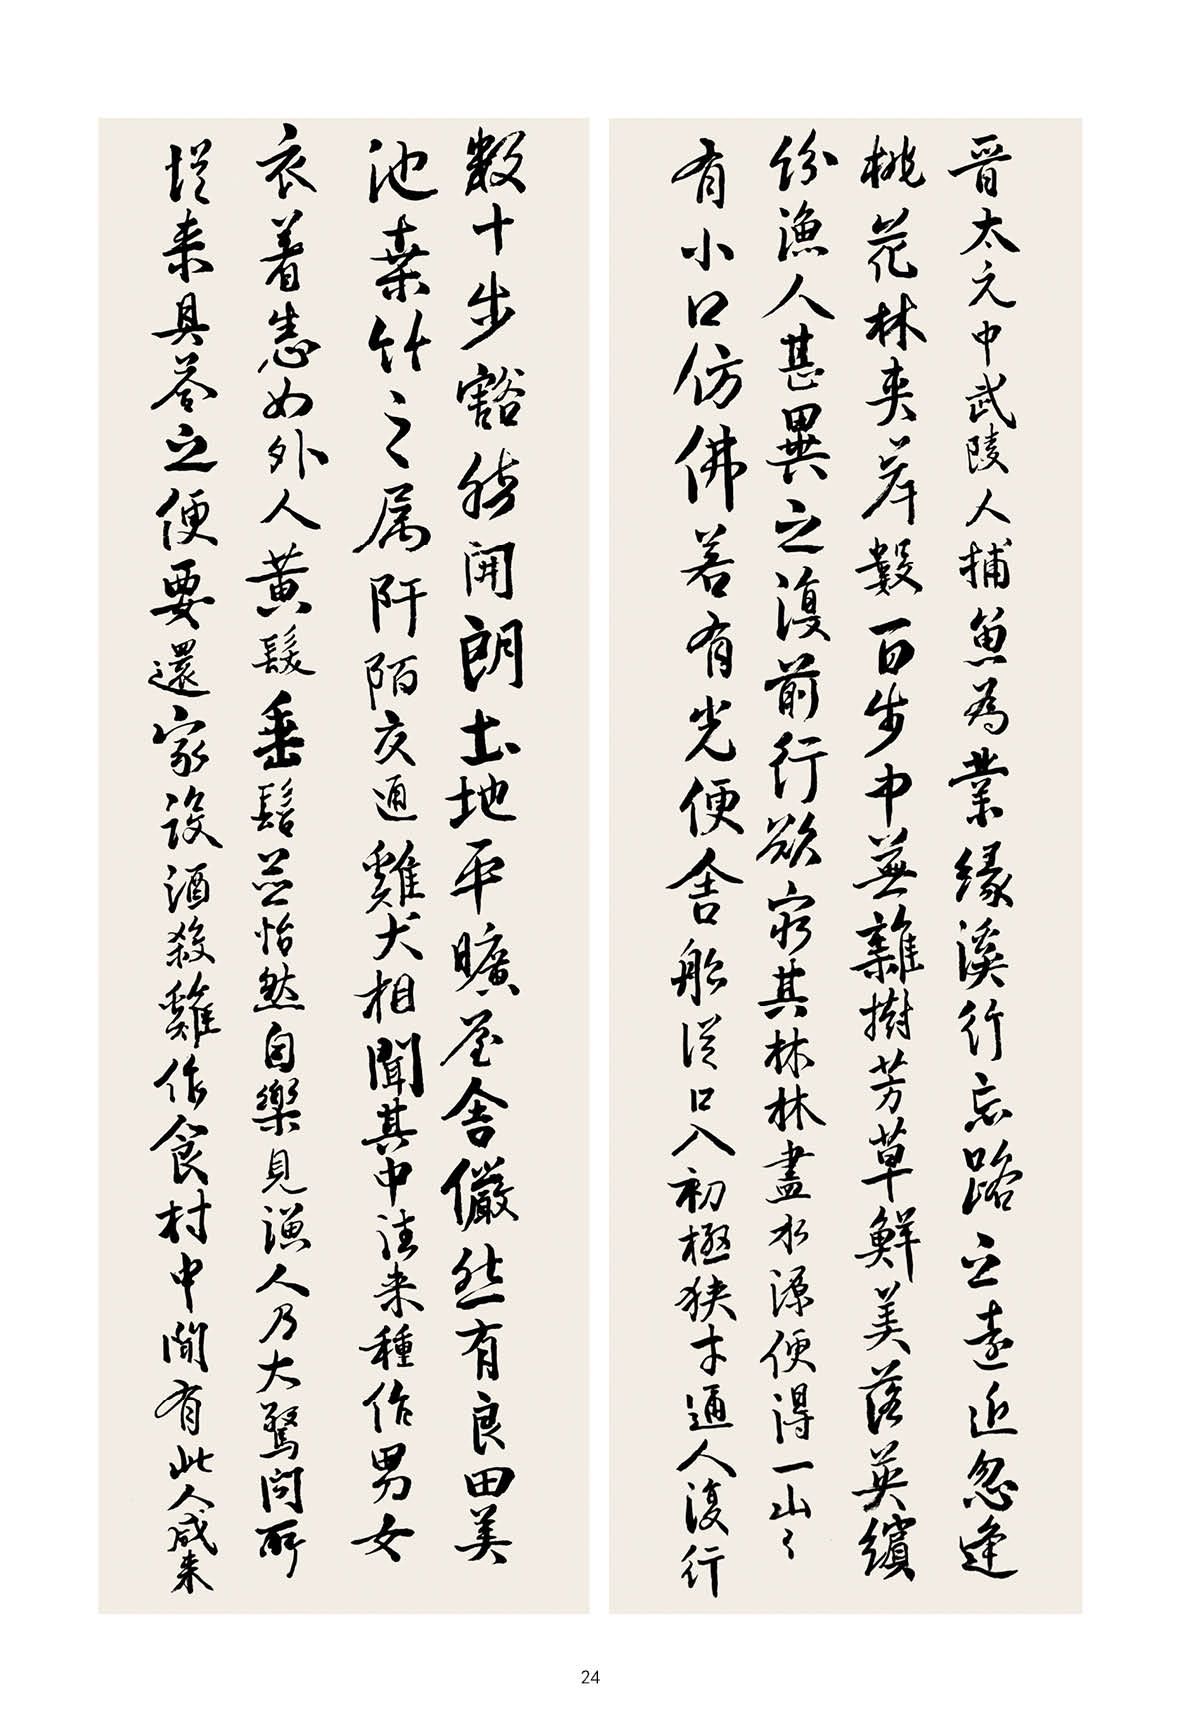 晋太元中武陵人捕魚為業緣溪行忘路之遠近忽逢
桃花林夾岸數百步中無雜樹芳草鮮美落英繽
紛漁人甚異之復前行欲窮其林林盡水源便得一山〻
有小口仿佛若有光便舍船從口入初極狹才通人復行
數十步豁然開朗土地平曠屋舍儼然有良田美
池桑竹之属阡陌交通雞犬相聞其中往来種作男女
衣着悉如外人黄髮垂髫並怡然自樂見漁人乃大驚問所
從来具答之便要還家設酒殺雞作食村中聞有此人咸来
24